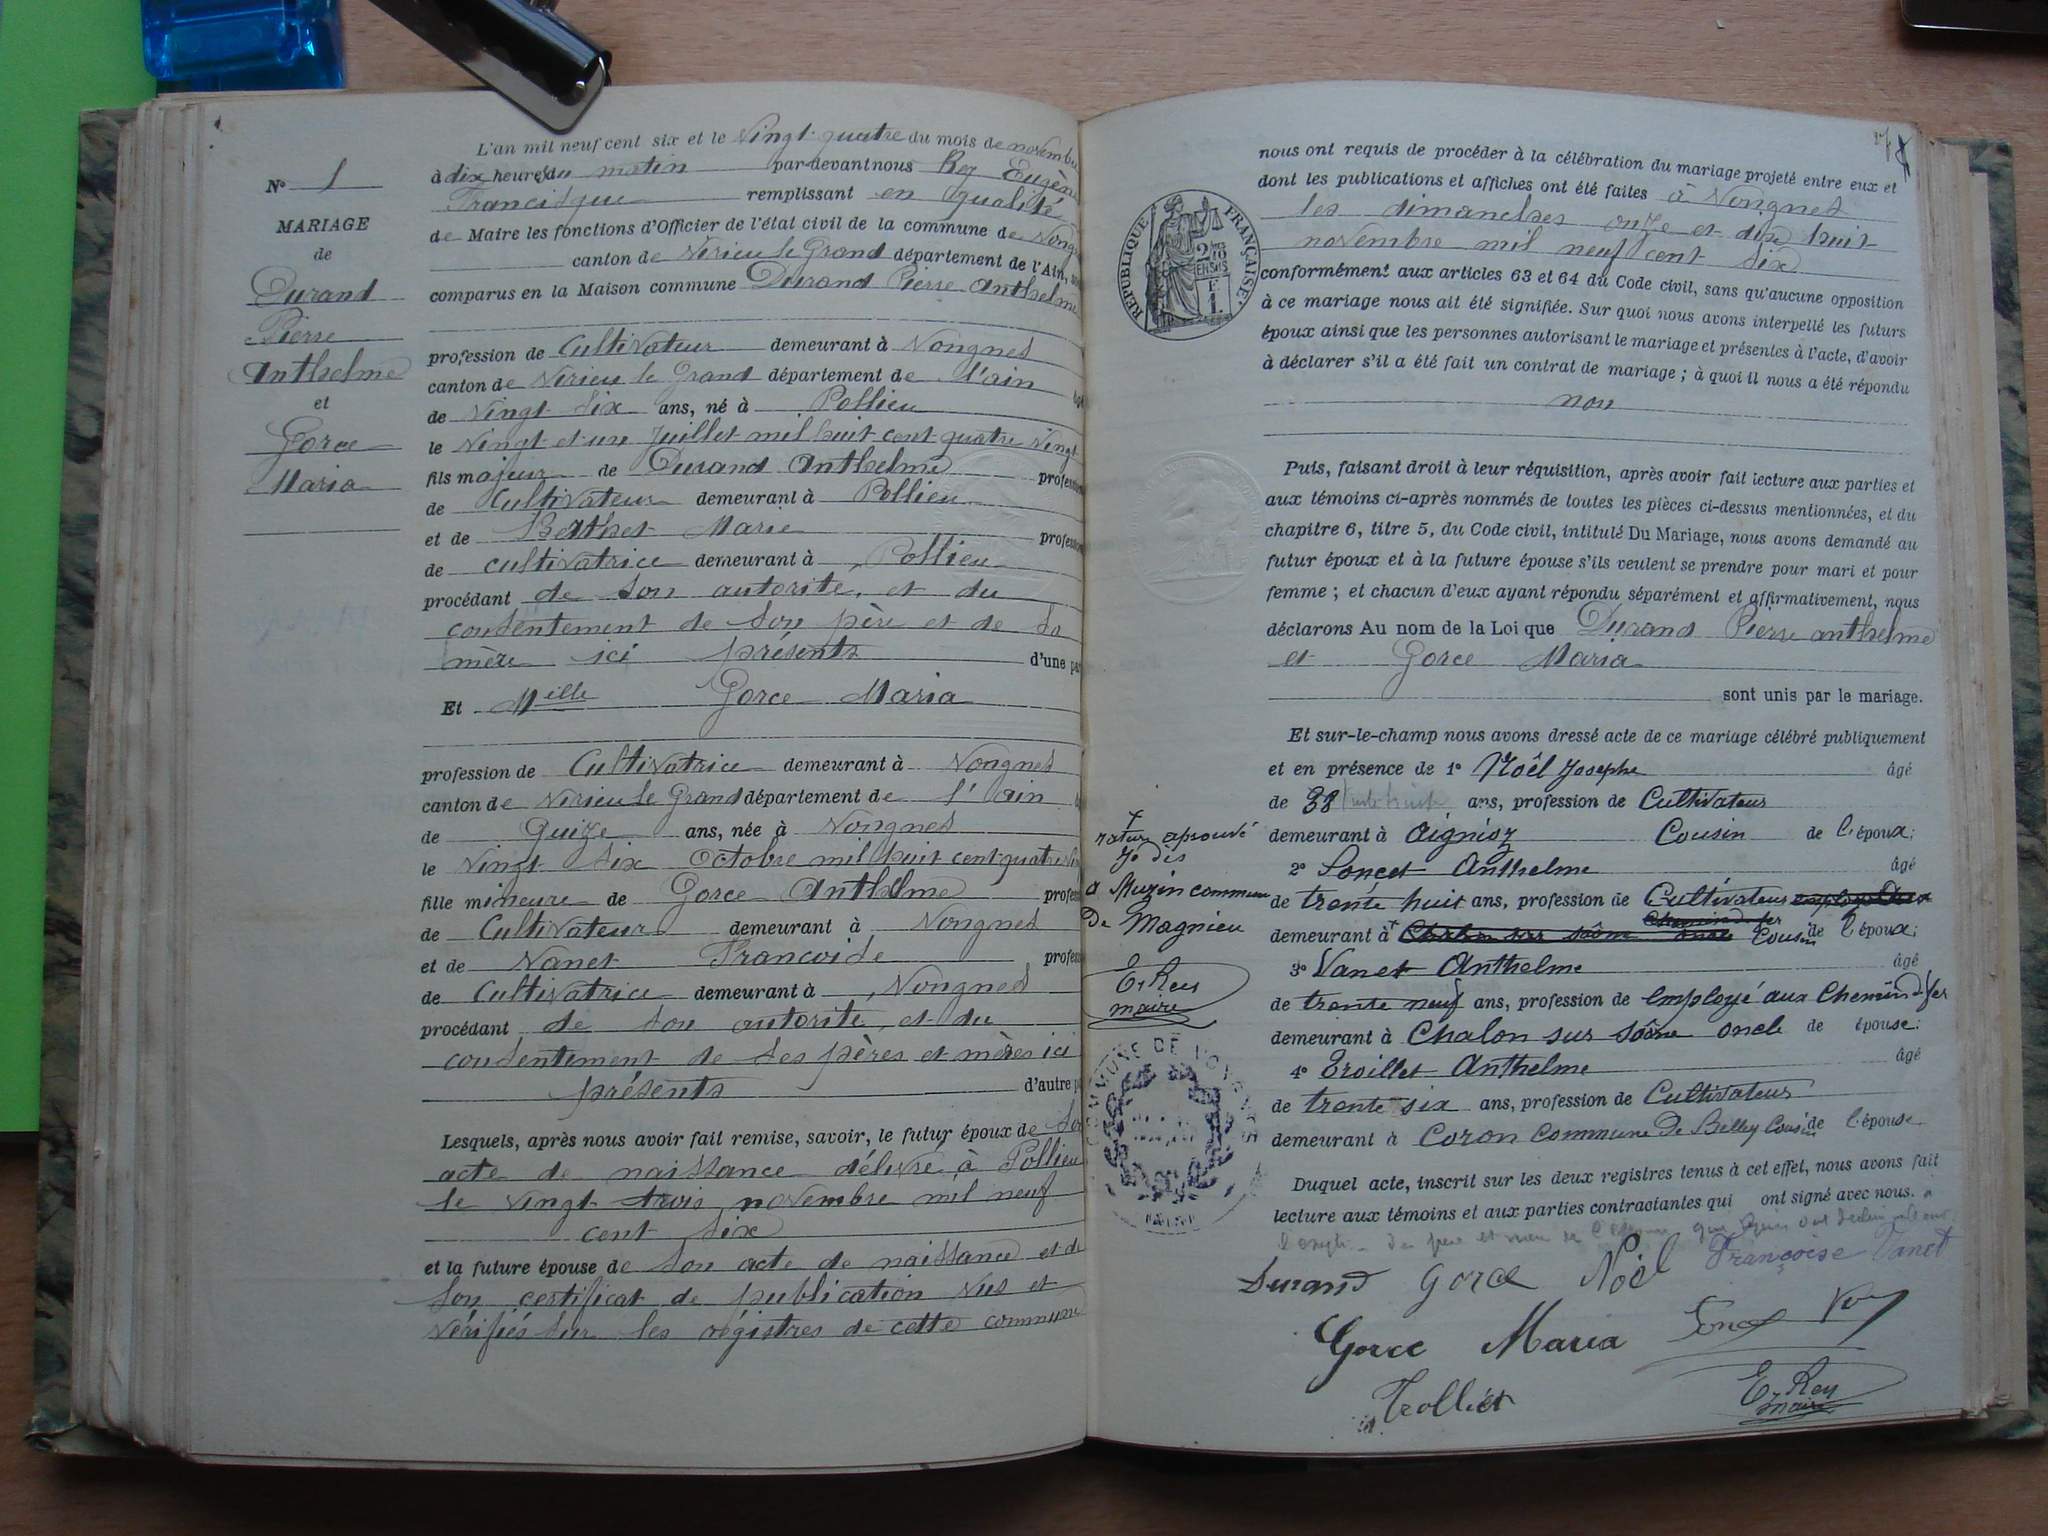 L'an mil neuf cent six et le Vingt-quatre du mois de novembre
à dix heures du matin par-devant nous Rey Eugène
Francisque remplissant en qualité
de Maire les fonctions d'Officier de l'état civil de la commune de Vong
canton de Virieu le Grand département de l'Ain,
comparus en la Maison commune Durand Pierre Anthelme
profession de Cultivateur demeurant à Vongnes
canton de Virieu le Grand département de l'ain
de Vingt Six ans, né à Pollieu
le Vingt et un Juillet mil huit cent quatre Vingt
fils majeur de Durand Anthelme profession
de Cultivateur demeurant à Pollieu
et de Berthet Marie profession
de cultivatrice demeurant à Pollieu
procédant de son autorite, et du
consentement de son père et de sa
mère ici présents d'une par
Et Melle Gorce Maria
profession de Cultivatrice demeurant à Vongnes
canton de Virieu le Grand département de l'ain
de Quize ans, née à Vongnes
le Vingt Six Octobre mil huit cent quatre Vin
fille mineure de Gorce Anthelme profess
de Cultivateur demeurant à Vongnes
et de Vanet Francoise profess
de Cultivatrice demeurant à Vongnes
procédant de son autorite, et du
consentement de ses pères et mères ici
présents d'autre p
Lesquels, après nous avoir fait remise, savoir, le futur époux de Son
acte de naissance délivré à Pollieu
le Vingt trois novembre mil neuf
cent Six
et la future épouse de son acte de naissance et de
son certificat de publication Vus et
Vérifiés Sur les régistres de cette commune
No 1
MARIAGE
de
Durand
Pierre
Anthelme
et
Gorce
Maria
nous ont requis de procéder à la célébration du mariage projeté entre eux et
dont les publications et affiches ont été faites à Vongnes
les dimanches onze et dix huit
novembre mil neuf cent Six
conformément aux articles 63 et 64 du Code civil, sans qu'aucune opposition
à ce mariage nous ait été signifiée. Sur quoi nous avons interpellé les futurs
époux ainsi que les personnes autorisant le mariage et présentes à l'acte, d'avoir
à déclarer s'il a été fait un contrat de mariage ; à quoi il nous a été répondu
non
Puis, faisant droit à leur réquisition, après avoir fait lecture aux parties et
aux témoins ci-après nommés de toutes les pièces ci-dessus mentionnées, et du
chapitre 6, titre 5, du Code civil, intitulé Du Mariage, nous avons demandé au
futur époux et à la future épouse s'ils veulent se prendre pour mari et pour
femme ; et chacun d'eux ayant répondu séparément et affirmativement, nous
déclarons Au nom de la Loi que Durand Pierre anthelme
et Gorce Maria
sont unis par le mariage.
Et sur-le-champ nous avons dressé acte de ce mariage célébré publiquement
et en présence de 1o Noêl Josephe âgé
de 38 ans, profession de Cultivateur
demeurant à Aignioz Cousin de l'époux;
2o Soncet Anthelme âgé
de trente huit ans, profession de Cultivateur employé aux
Chemin de fer
demeurant à + Chalon sur saône oncle Cousin de l'époux;
3o Vanet Anthelme âgé
de trente neuf ans, profession de Employé aux Chemin de fer
demeurant à Chalon sur saône oncle de épouse;
4o Troillet Anthelme âgé
de trente six ans, profession de Cultivateur
demeurant à Coron commune de Belley Cousin de l'épouse
Duquel acte, inscrit sur les deux registres tenus à cet effet, nous avons fait
lecture aux témoins et aux parties contractantes qui ont signé avec nous.
Durand Gorce Noël Françoise Vanet
Gorce Maria Soncet
Trolliet E. Rey
maire
RÉPUBLIQUE FRANÇAISE
2/10 EN SUS
F
1.
rature aprouvé
a Muzin commune
De Magnieu
E. Rey
maire
COMMUNE DE VONGNES